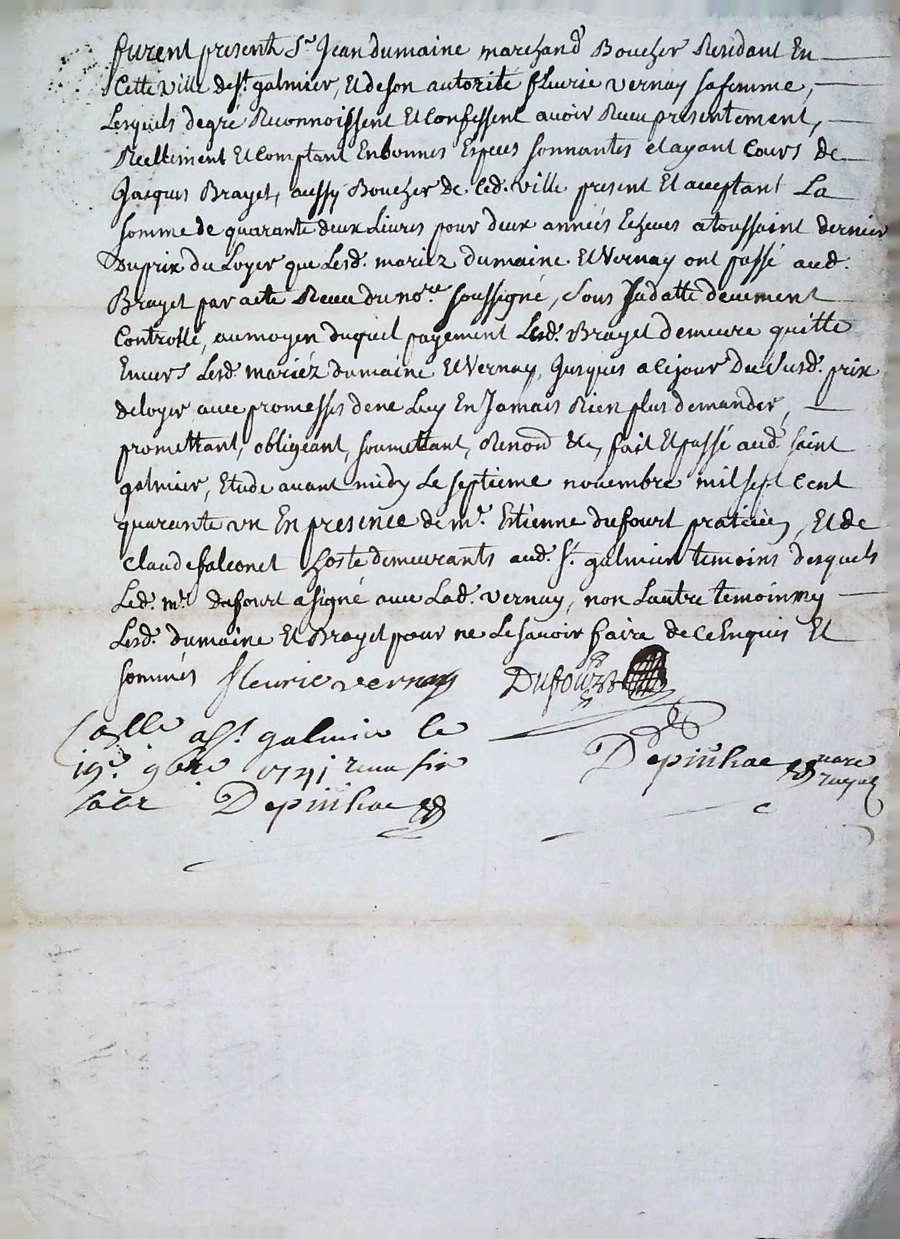 furent presents Sr. Jean dumaine marchand Boucher Residant En
Cette ville de st. galmier, Et de son autorité fleurie vernay sa femme,
Lesquels de gré Reconnoissent Et Confessent avoir Receu presentement,
Reellement Et Comptant En bonnes Espèces sonnantes et ayant Cours de
Jacques Brayet, aussy Boucher de Led. ville present Et acceptant La
somme de quarante deux Livres pour deux années Echeues a toussaint dernier
Du prix du Loyer que Lesd. mariez dumaine Et Vernay ont passé aud.
Brayet par acte Receu du nore. soussigné, sous sa datte deuement
Controllé, au moyen duquel payement Led. Brayet demeure quitte
Envers Lesd. mariéz dumaine Et Vernay, Jusques a Ce jour du susd. prix
de loyer avec promesses de ne Luy En Jamais Rien plus demander,
promettant, obligeant, soumettant, Renond &c, fait Et passé aud. saint
galmier, Etude avant midy Le septieme novembre mil sept Cent
quarante un En presence de mr. Estienne dufourt praticien, Et de
Claude falconet hoste demeurants aud. st. galmier temoins desquels
Led. mr. dufourt a signé avec Lad. vernay, non L'autre temoin ny
Lesd. dumaine Et Brayet pour ne Le savoir faire de Ce Enquis Et
sommés fleurie vernay Dufourt
a st. galmier le
19e. 9bre 1741 receu six
Depinhac Depinhac nore
royal